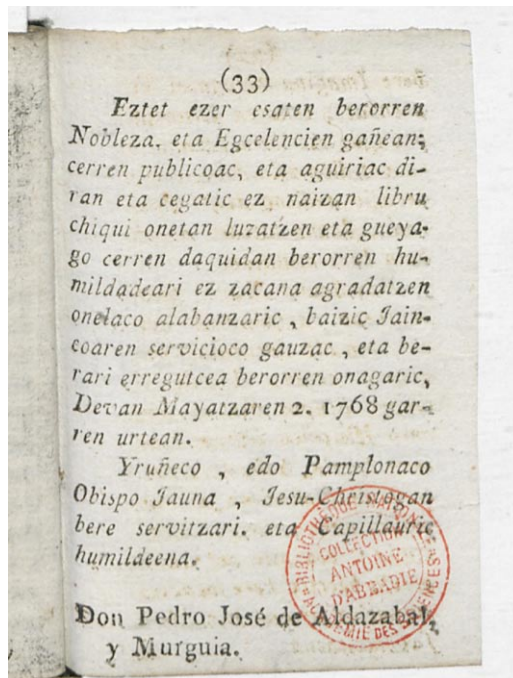 (33)
Eztet ezer esaten berorren
Nobleza. eta Egcelencien gañean;
cerren publicoac, eta aguiriac di-
ran eta cegatic ez naizan libru
chiqui onetan luzatzen eta gueya-
go cerren daquidan berorren hu-
mildadeari ez zacana agradatzen
onelaco alabanzaric, baizic Jain-
coaren servicioco gauzac, eta be-
rari erregutcea berorren onagaric,
Devan Mayatzaren 2. 1768 gar-
ren urtean.
Yruñeco, edo Pamplonaco
Obispo Jauna, Jesu-Christogan
bere servitzari. eta Capillauric
humildeena.
Don Pedro José de Aldazabal,
y Murguia.
BIBLIOTHÈQUE NATIONALE
COLLECTION
ANTOINE
D'ABBADIE
ACADÉMIE DES SCIENCES